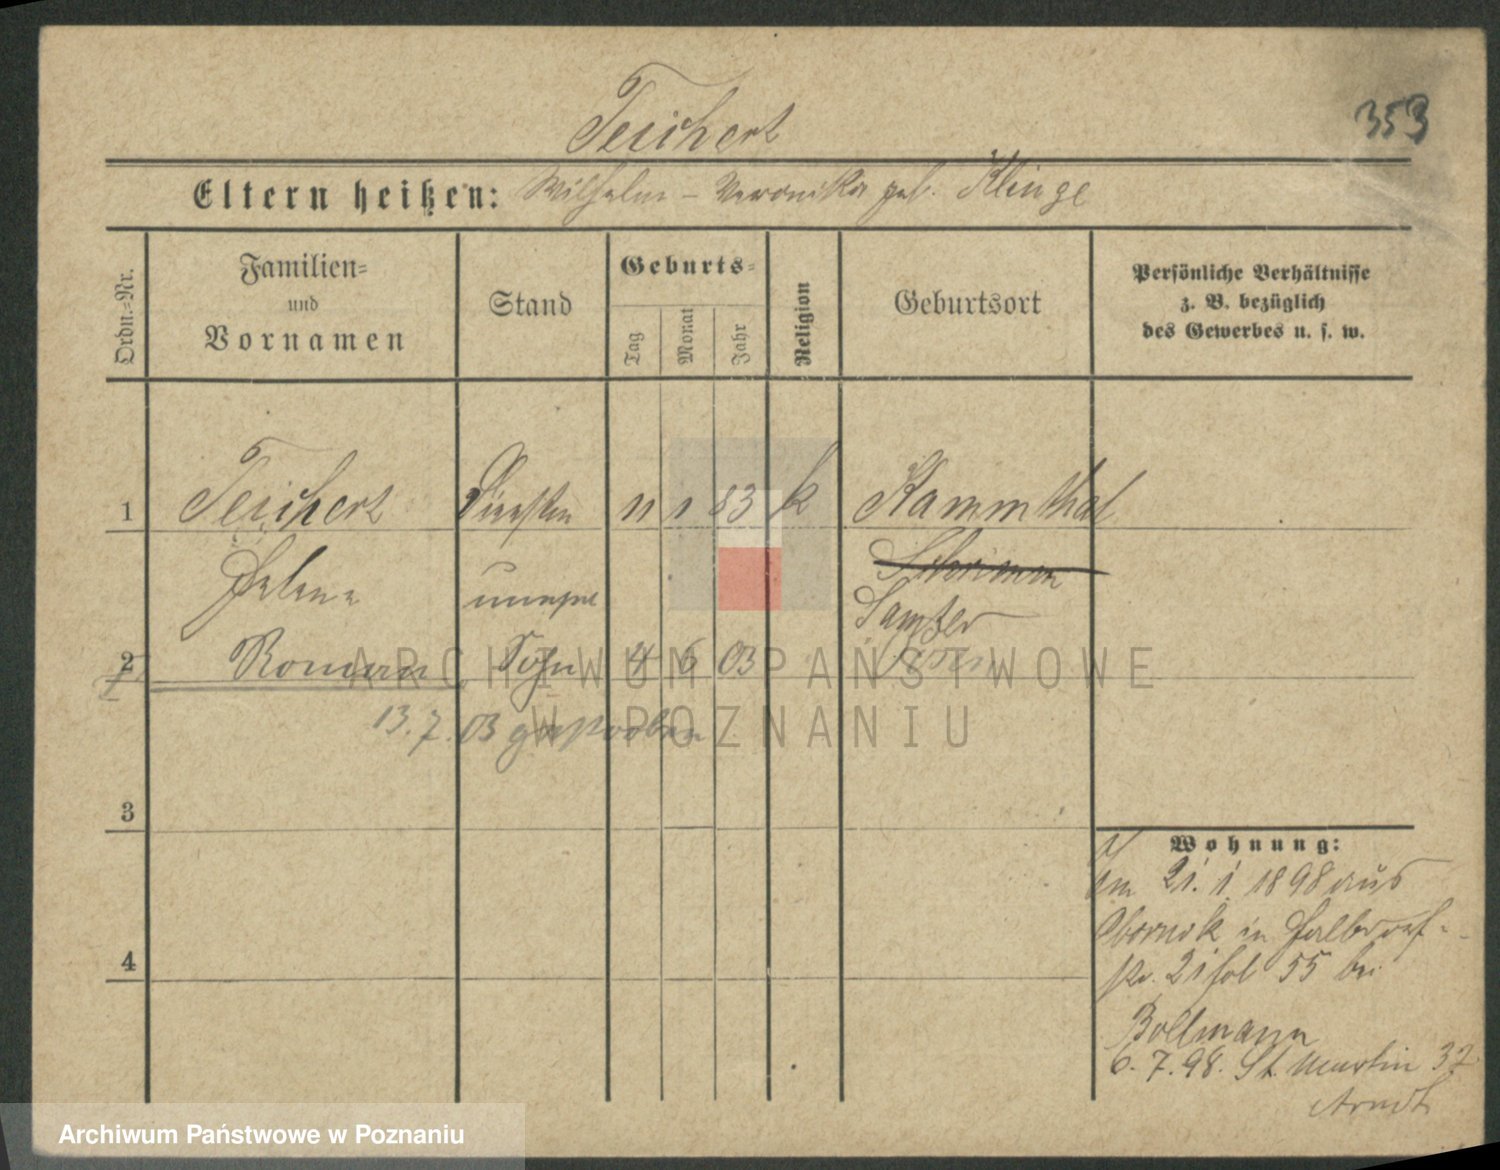 353
Teichert
Eltern heißen: Wilhelm - Veronika geb. Klinge
Ordn.-Nr.
Familien-
und
Vornamen
Stand
Geburts-
Tag
Monat
Jahr
Religion
Geburtsort
Persönliche Verhältnisse
z. B. bezüglich
des Gewerbes u. s. w.
1 Teichert 11 1 83 k Kammthal
Helene unverehl Schrimm
Samter
2 Roman Sohn 4 6 03 Posen
13.7.03 gestorben
3
4
Wohnung:
Am 21. 1 1898 aus
Obornik in Halbdorf-
str. 21 fol 55 bei
Bollmann
6.7.98. St. Martin 37
Arndt
ARCHIWUM PAŃSTWOWE
W POZNANIU
Archiwum Państwowe w Poznaniu